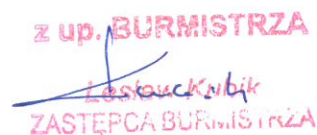 z up. BURMISTRZA
Kubik
ZASTĘPCA BURMISTRZA